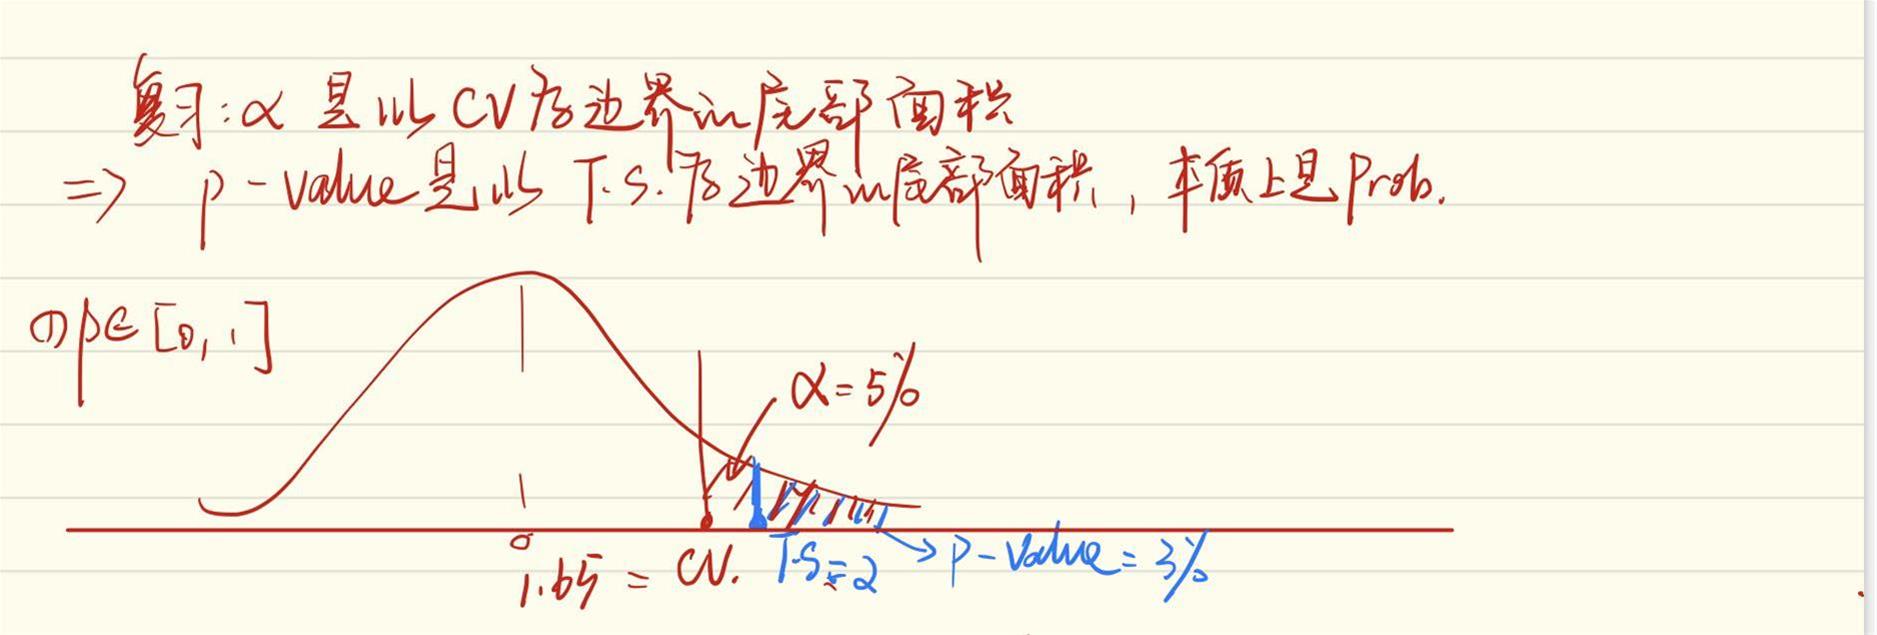 复习：α 是以 CV 为边界的尾部面积
=> p-value 是以 T.S. 为边界的尾部面积，本质上是 Prob.
① p∈[0,1]
α=5%
0
1.65 = CV.
T.S=2 → p-value=3%